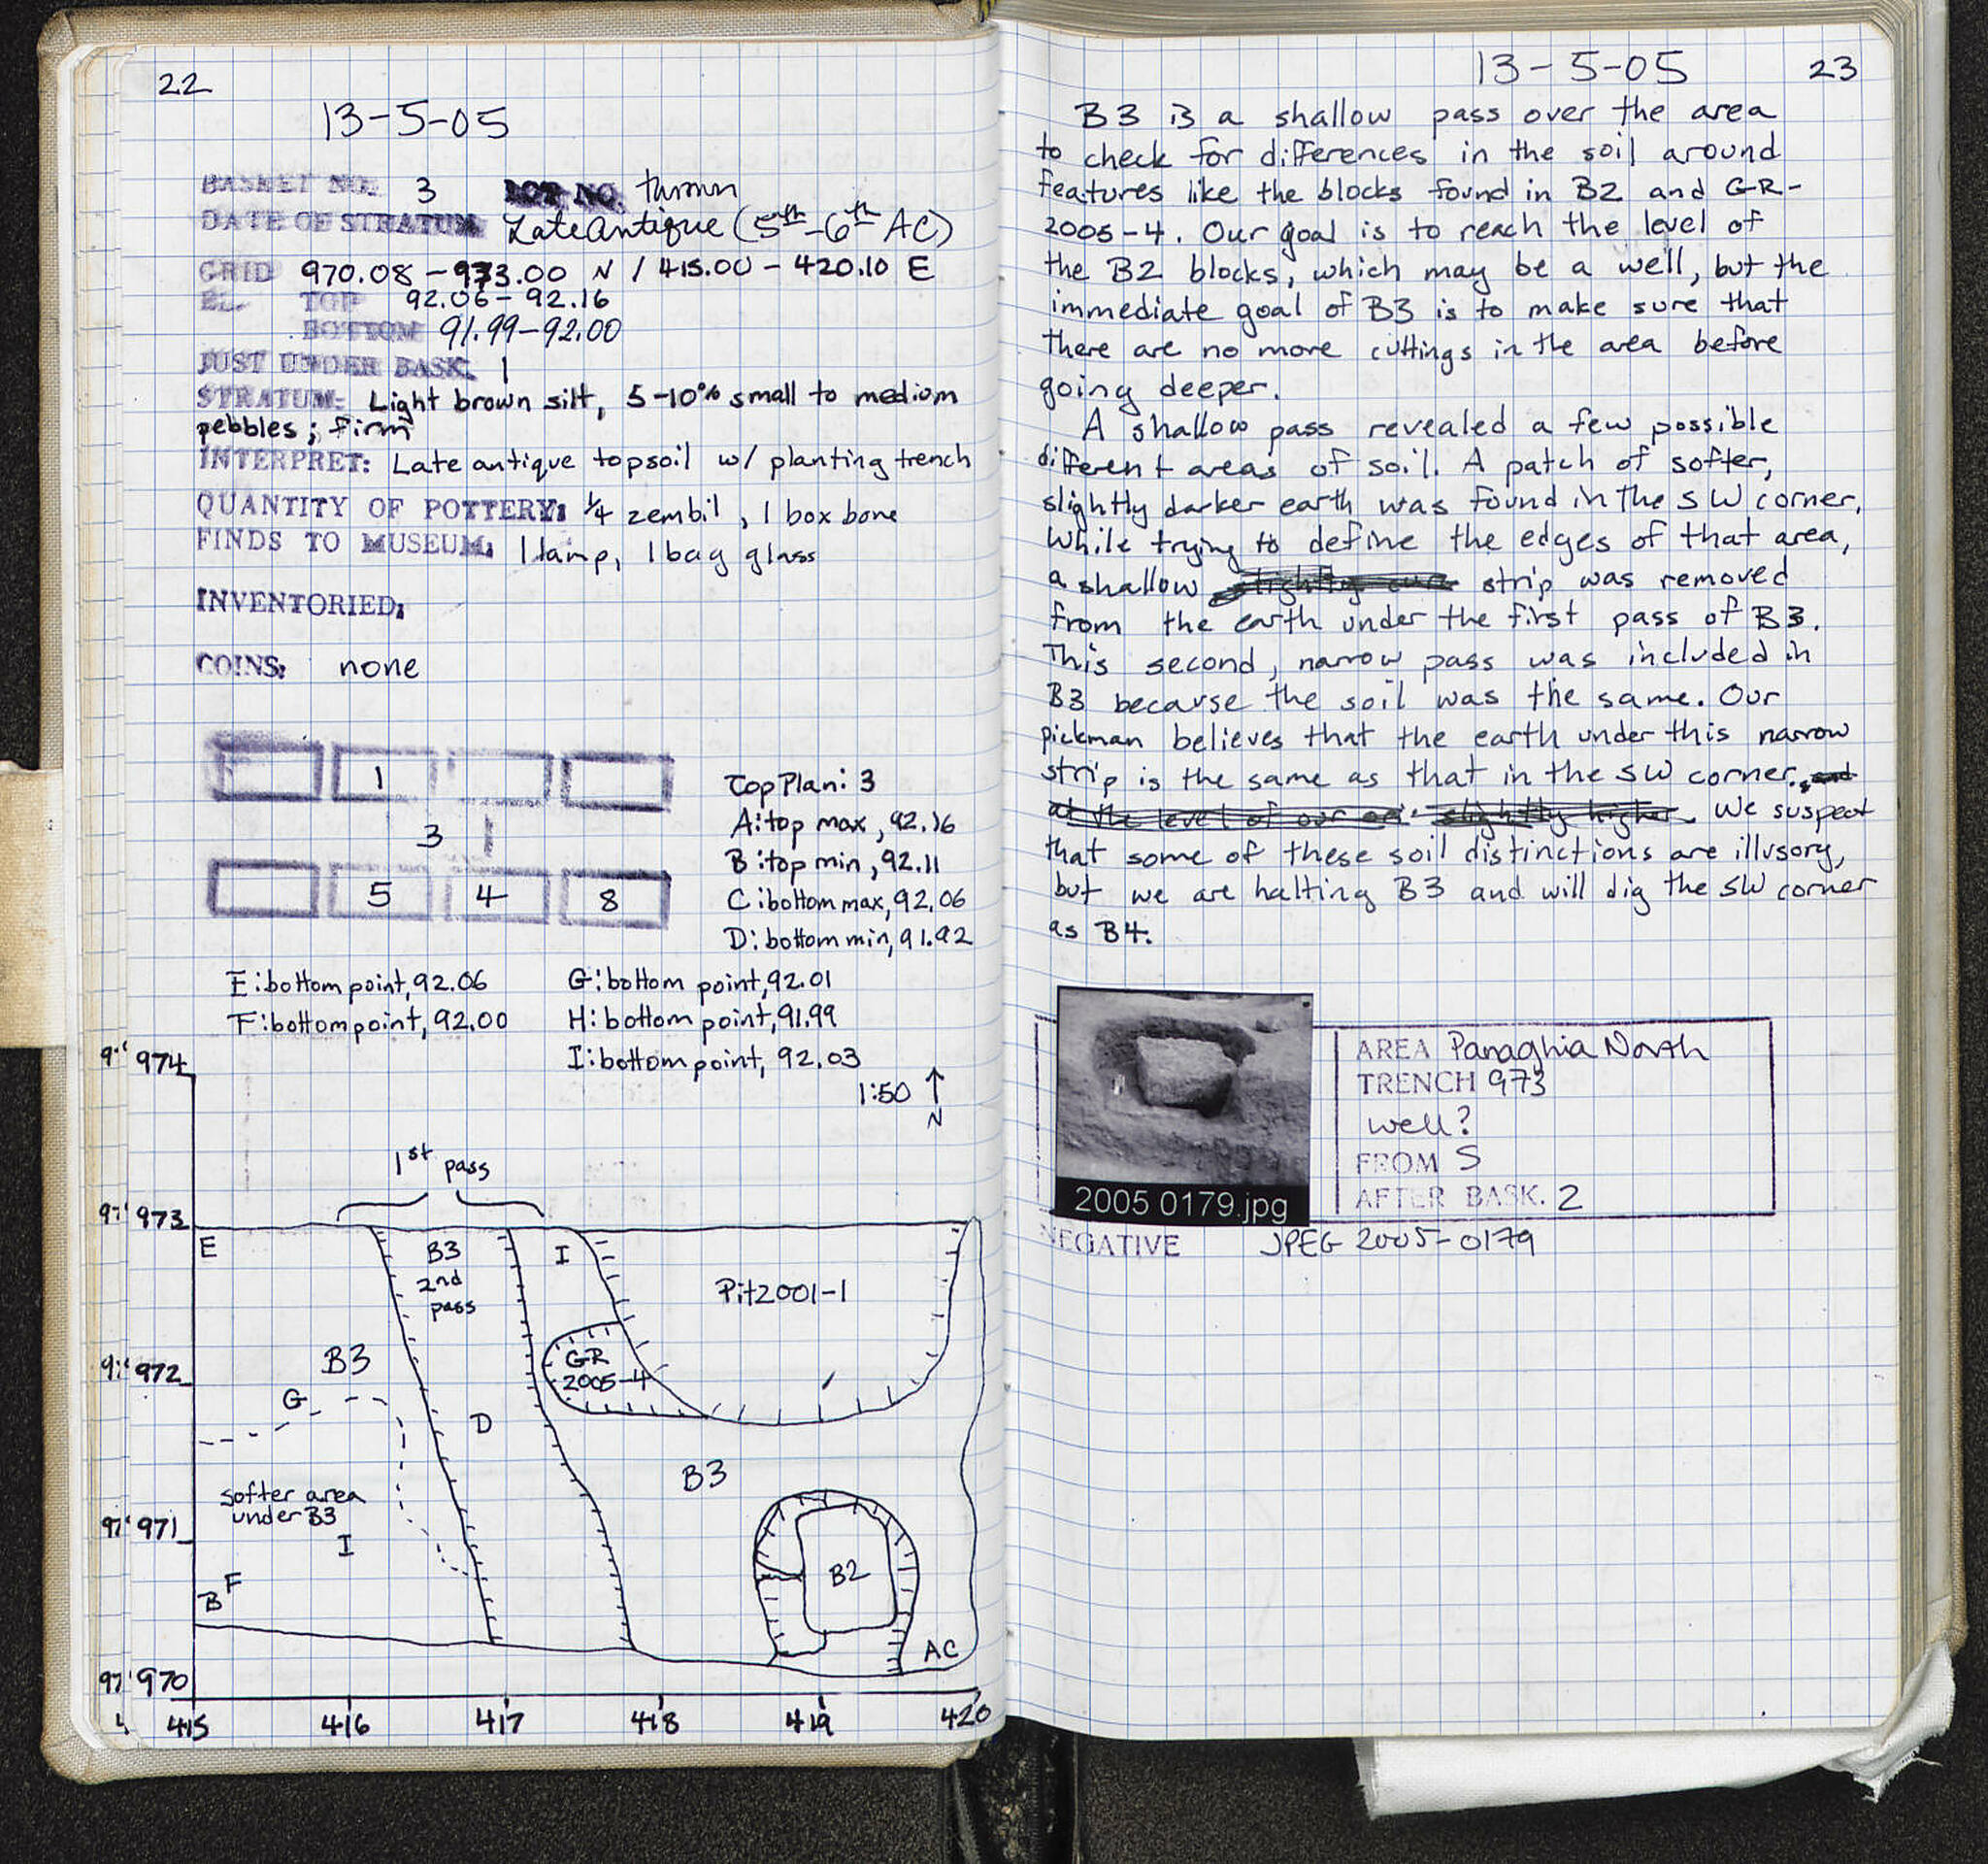 22
13-5-05
BASKET NO. 3 LOT NO. thrown
DATE OF STRATUM Late Antique (5th-6th AC)
GRID 970.08 - 973.00 N / 415.00 - 420.10 E
EL. TOP 92.06 - 92.16
BOTTOM 91.99-92.00
JUST UNDER BASK. 1
STRATUM: Light brown silt, 5-10% small to medium
pebbles; firm
INTERPRET: Late antique topsoil w/ planting trench
QUANTITY OF POTTERY: 1/4 zembil, 1 box bone
FINDS TO MUSEUM: 1 lamp, 1 bag glass
INVENTORIED:
COINS: none
1
3
5 4 8
Top Plan: 3
A: top max, 92.16
B: top min, 92.11
C: bottom max, 92.06
D: bottom min, 91.92
E: bottom point, 92.06
F: bottom point, 92.00
G: bottom point, 92.01
H: bottom point, 91.99
I: bottom point, 92.03
1:50
N
1st pass
974
973
972
971
970
415 416 417 418 419 420
E
B3
2nd
pass
I
Pit2001-1
GR
2005-4
B3
G
D
B3
softer area
under B3
I
B F
B2
AC
13-5-05 23
B3 is a shallow pass over the area
to check for differences in the soil around
features like the blocks found in B2 and GR-
2005-4. Our goal is to reach the level of
the B2 blocks, which may be a well, but the
immediate goal of B3 is to make sure that
there are no more cuttings in the area before
going deeper.
A shallow pass revealed a few possible
different areas of soil. A patch of softer,
slightly darker earth was found in the SW corner.
While trying to define the edges of that area,
a shallow strip was removed
from the earth under the first pass of B3.
This second, narrow pass was included in
B3 because the soil was the same. Our
pickman believes that the earth under this narrow
strip is the same as that in the SW corner.
at the level of our slightly higher. We suspect
that some of these soil distinctions are illusory,
but we are halting B3 and will dig the SW corner
as B4.
2005 0179.jpg
AREA Panaghia North
TRENCH 973
well?
FROM S
AFTER BASK. 2
NEGATIVE JPEG 2005-0179